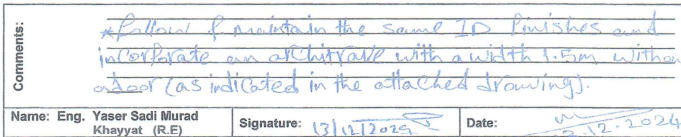 Comments:
* follow & maintain the same ID finishes and
incorporate an architrave with a width 1.5m withou
a door (as indicated in the attached drawing).
Name: Eng. Yaser Sadi Murad
Khayyat (R.E)
Signature: 13/12/2024
Date: 2.12.2024